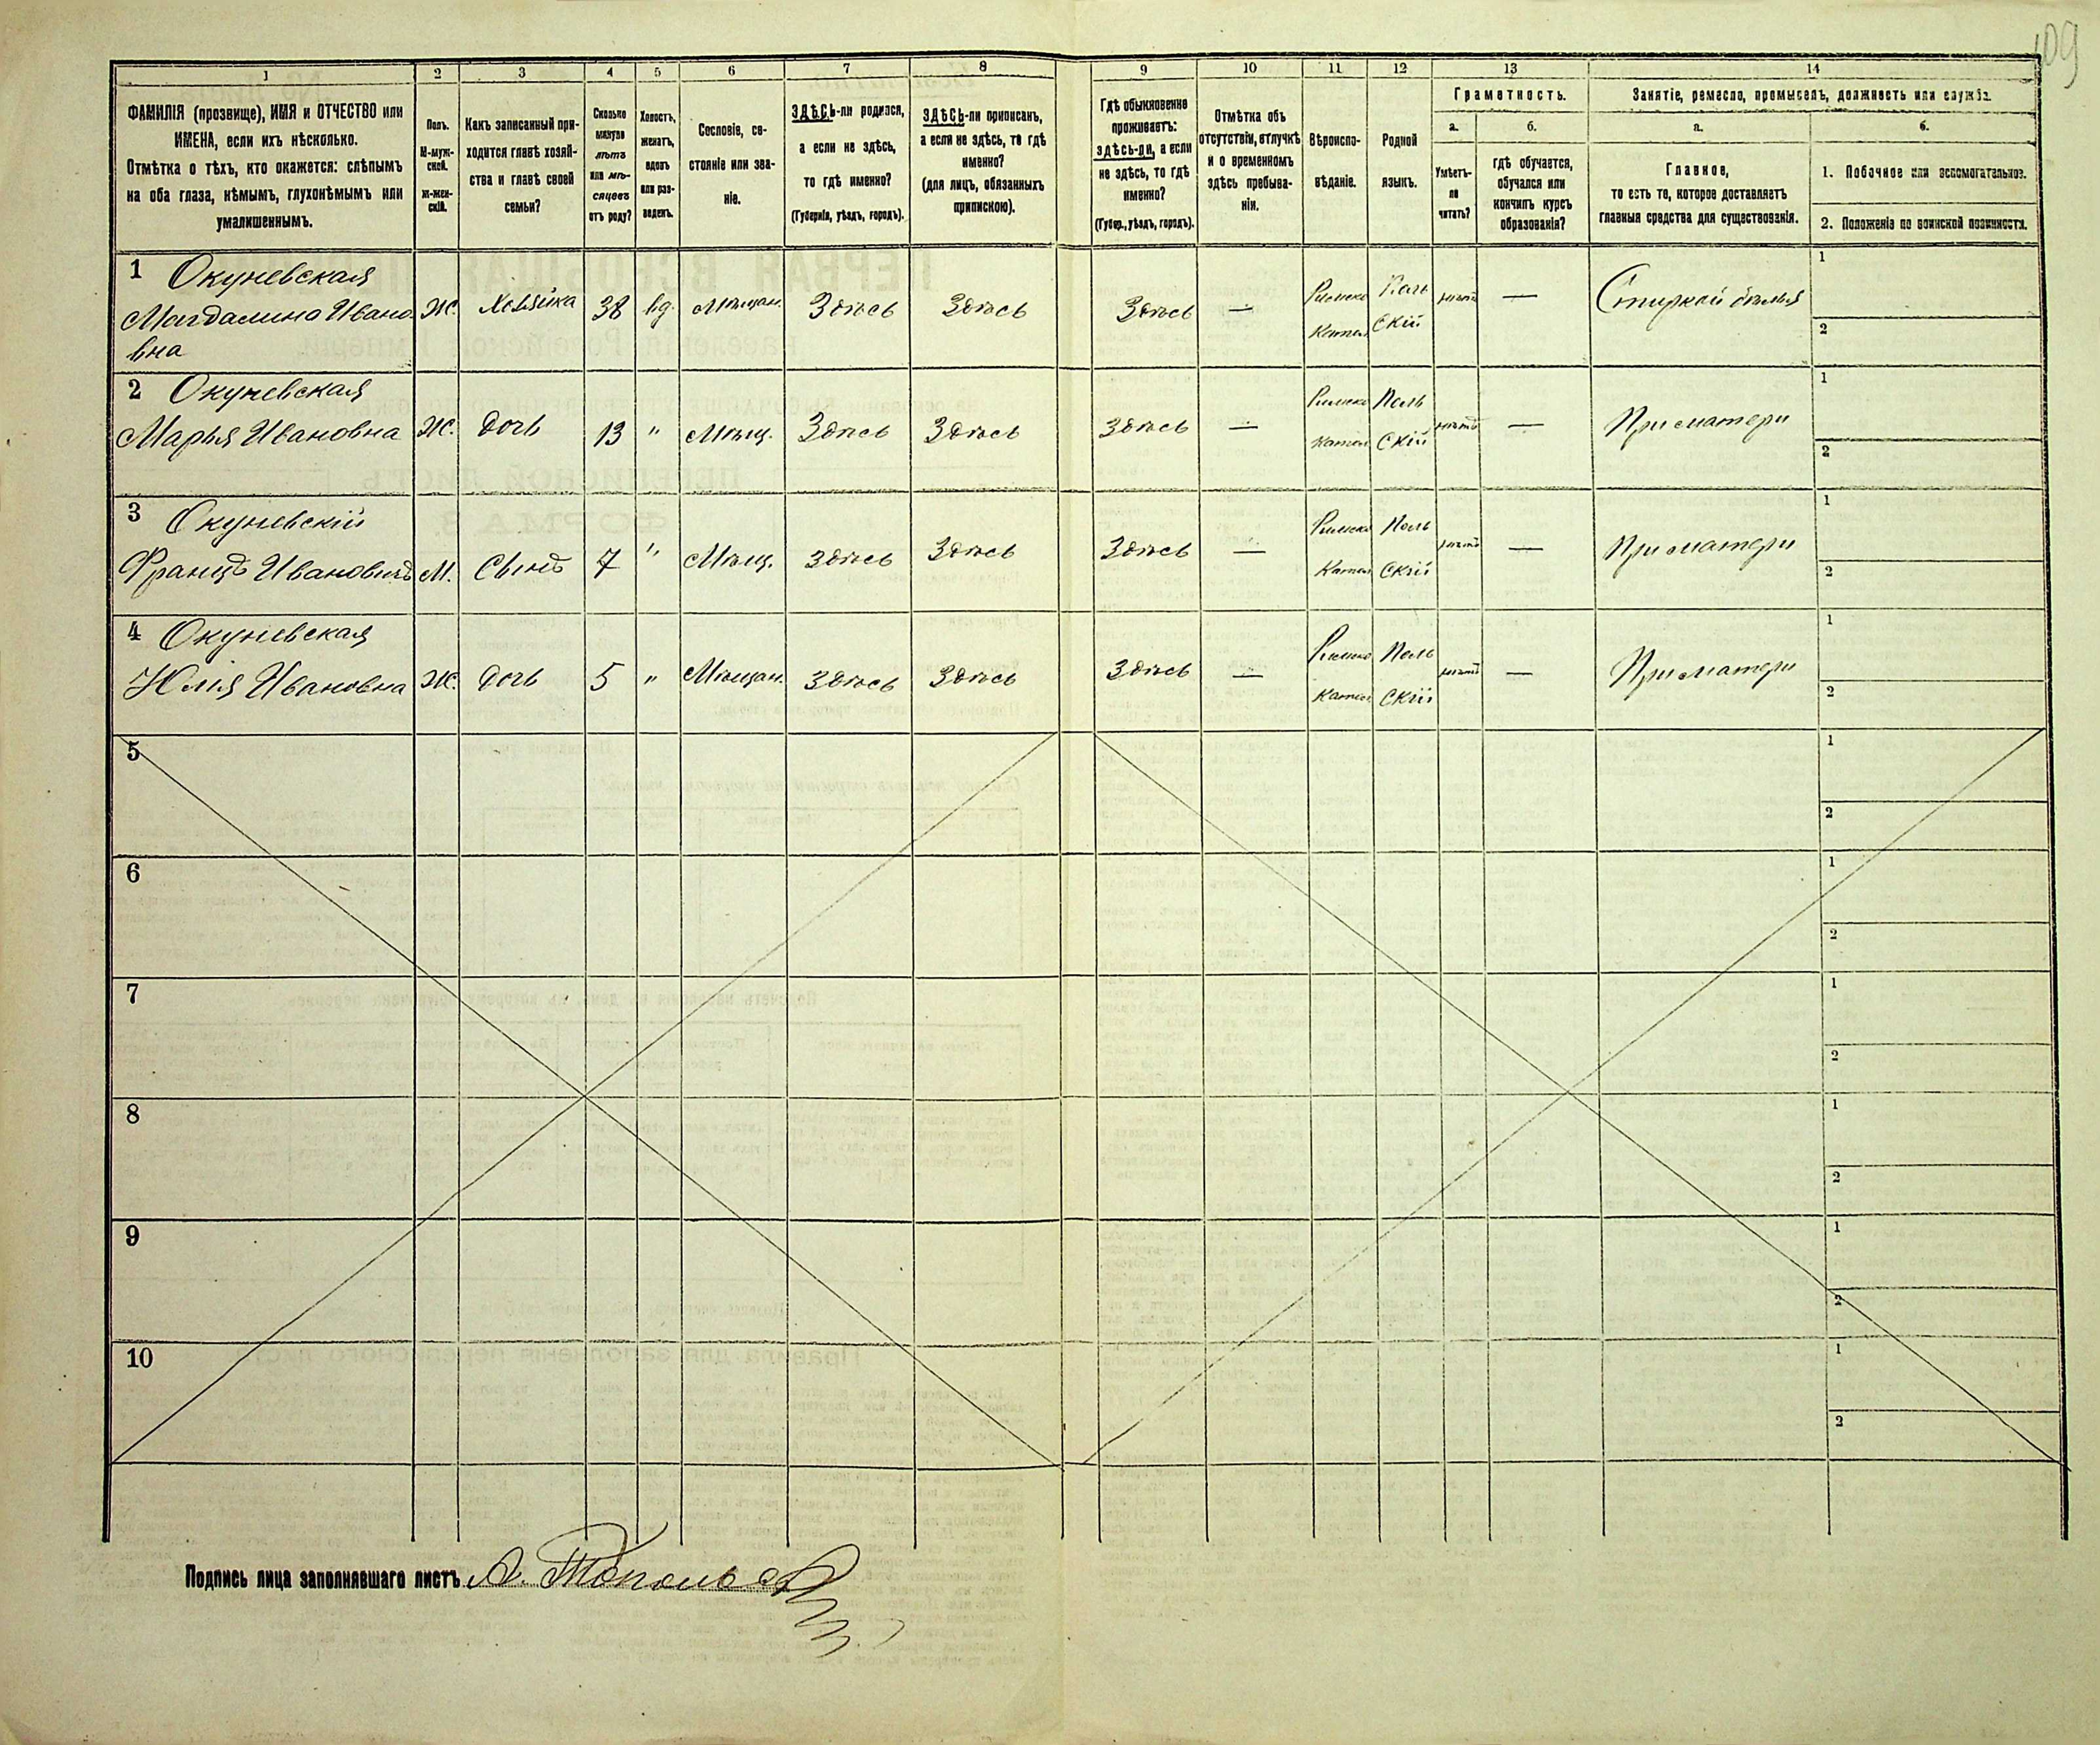 109
1 2 3 4 5 6 7 8 9 10 11 12 13 14
ФАМИЛІЯ (прозвище), ИМЯ и ОТЧЕСТВО или
ИМЕНА, если ихъ нѣсколько.
Отмѣтка о тѣхъ, кто окажется: слѣпымъ
на оба глаза, нѣмымъ, глухонѣмымъ или
умалишеннымъ.
Полъ.
М-муж-
ской.
Ж-жен-
скій.
Какъ записанный при-
ходится главѣ хозяй-
ства и главѣ своей
семьи?
Сколько
минуло
лѣтъ
или мѣ-
сяцевъ
отъ роду?
Холостъ,
женатъ,
вдовъ
или раз-
веденъ.
Сословіе, со-
стояніе или зва-
ніе.
ЗДѢСЬ-ли родился,
а если не здѣсь,
то гдѣ именно?
(Губернія, уѣздъ, городъ).
ЗДѢСЬ-ли приписанъ,
а если не здѣсь, то гдѣ
именно?
(для лицъ, обязанныхъ
припискою).
Гдѣ обыкновенно
проживаетъ:
здѣсь-ли, а если
не здѣсь, то гдѣ
именно?
(Губер., уѣздъ, городъ).
Отмѣтка объ
отсутствіи, отлучкѣ
и о временномъ
здѣсь пребыва-
ніи.
Вѣроиспо-
вѣданіе.
Родной
языкъ.
Грамотность.
а.
Умѣетъ-
ли
читать?
б.
гдѣ обучается,
обучался или
кончилъ курсъ
образованія?
Занятіе, ремесло, промыселъ, должность или служба.
а.
Главное,
то есть то, которое доставляетъ
главныя средства для существованія.
б.
1. Побочное или вспомогательное.
2. Положеніе по воинской повинности.
1 Окуневская
Магдалина Ивано
вна
Ж. Хозяйка 38 вд. Мѣщан. Здѣсь Здѣсь Здѣсь — Римско Катол Поль Скій нѣтъ — Стиркой бѣлья
1
2
2 Окуневская
Марья Ивановна Ж. Дочь 13 " Мѣщ. Здѣсь Здѣсь Здѣсь — Римско Катол Поль Скій нѣтъ — При матери
1
2
3 Окуневскій
Францъ Ивановичъ М. Сынъ 7 " Мѣщ. Здѣсь Здѣсь Здѣсь — Римско Катол Поль Скій нѣтъ — При матери
1
2
4 Окуневская
Юлія Ивановна Ж. Дочь 5 " Мѣщан. Здѣсь Здѣсь Здѣсь — Римско Катол Поль Скій нѣтъ — При матери
1
2
5
1
2
6
1
2
7
1
2
8
1
2
9
1
2
10
1
2
Подпись лица заполнявшаго листъ А.